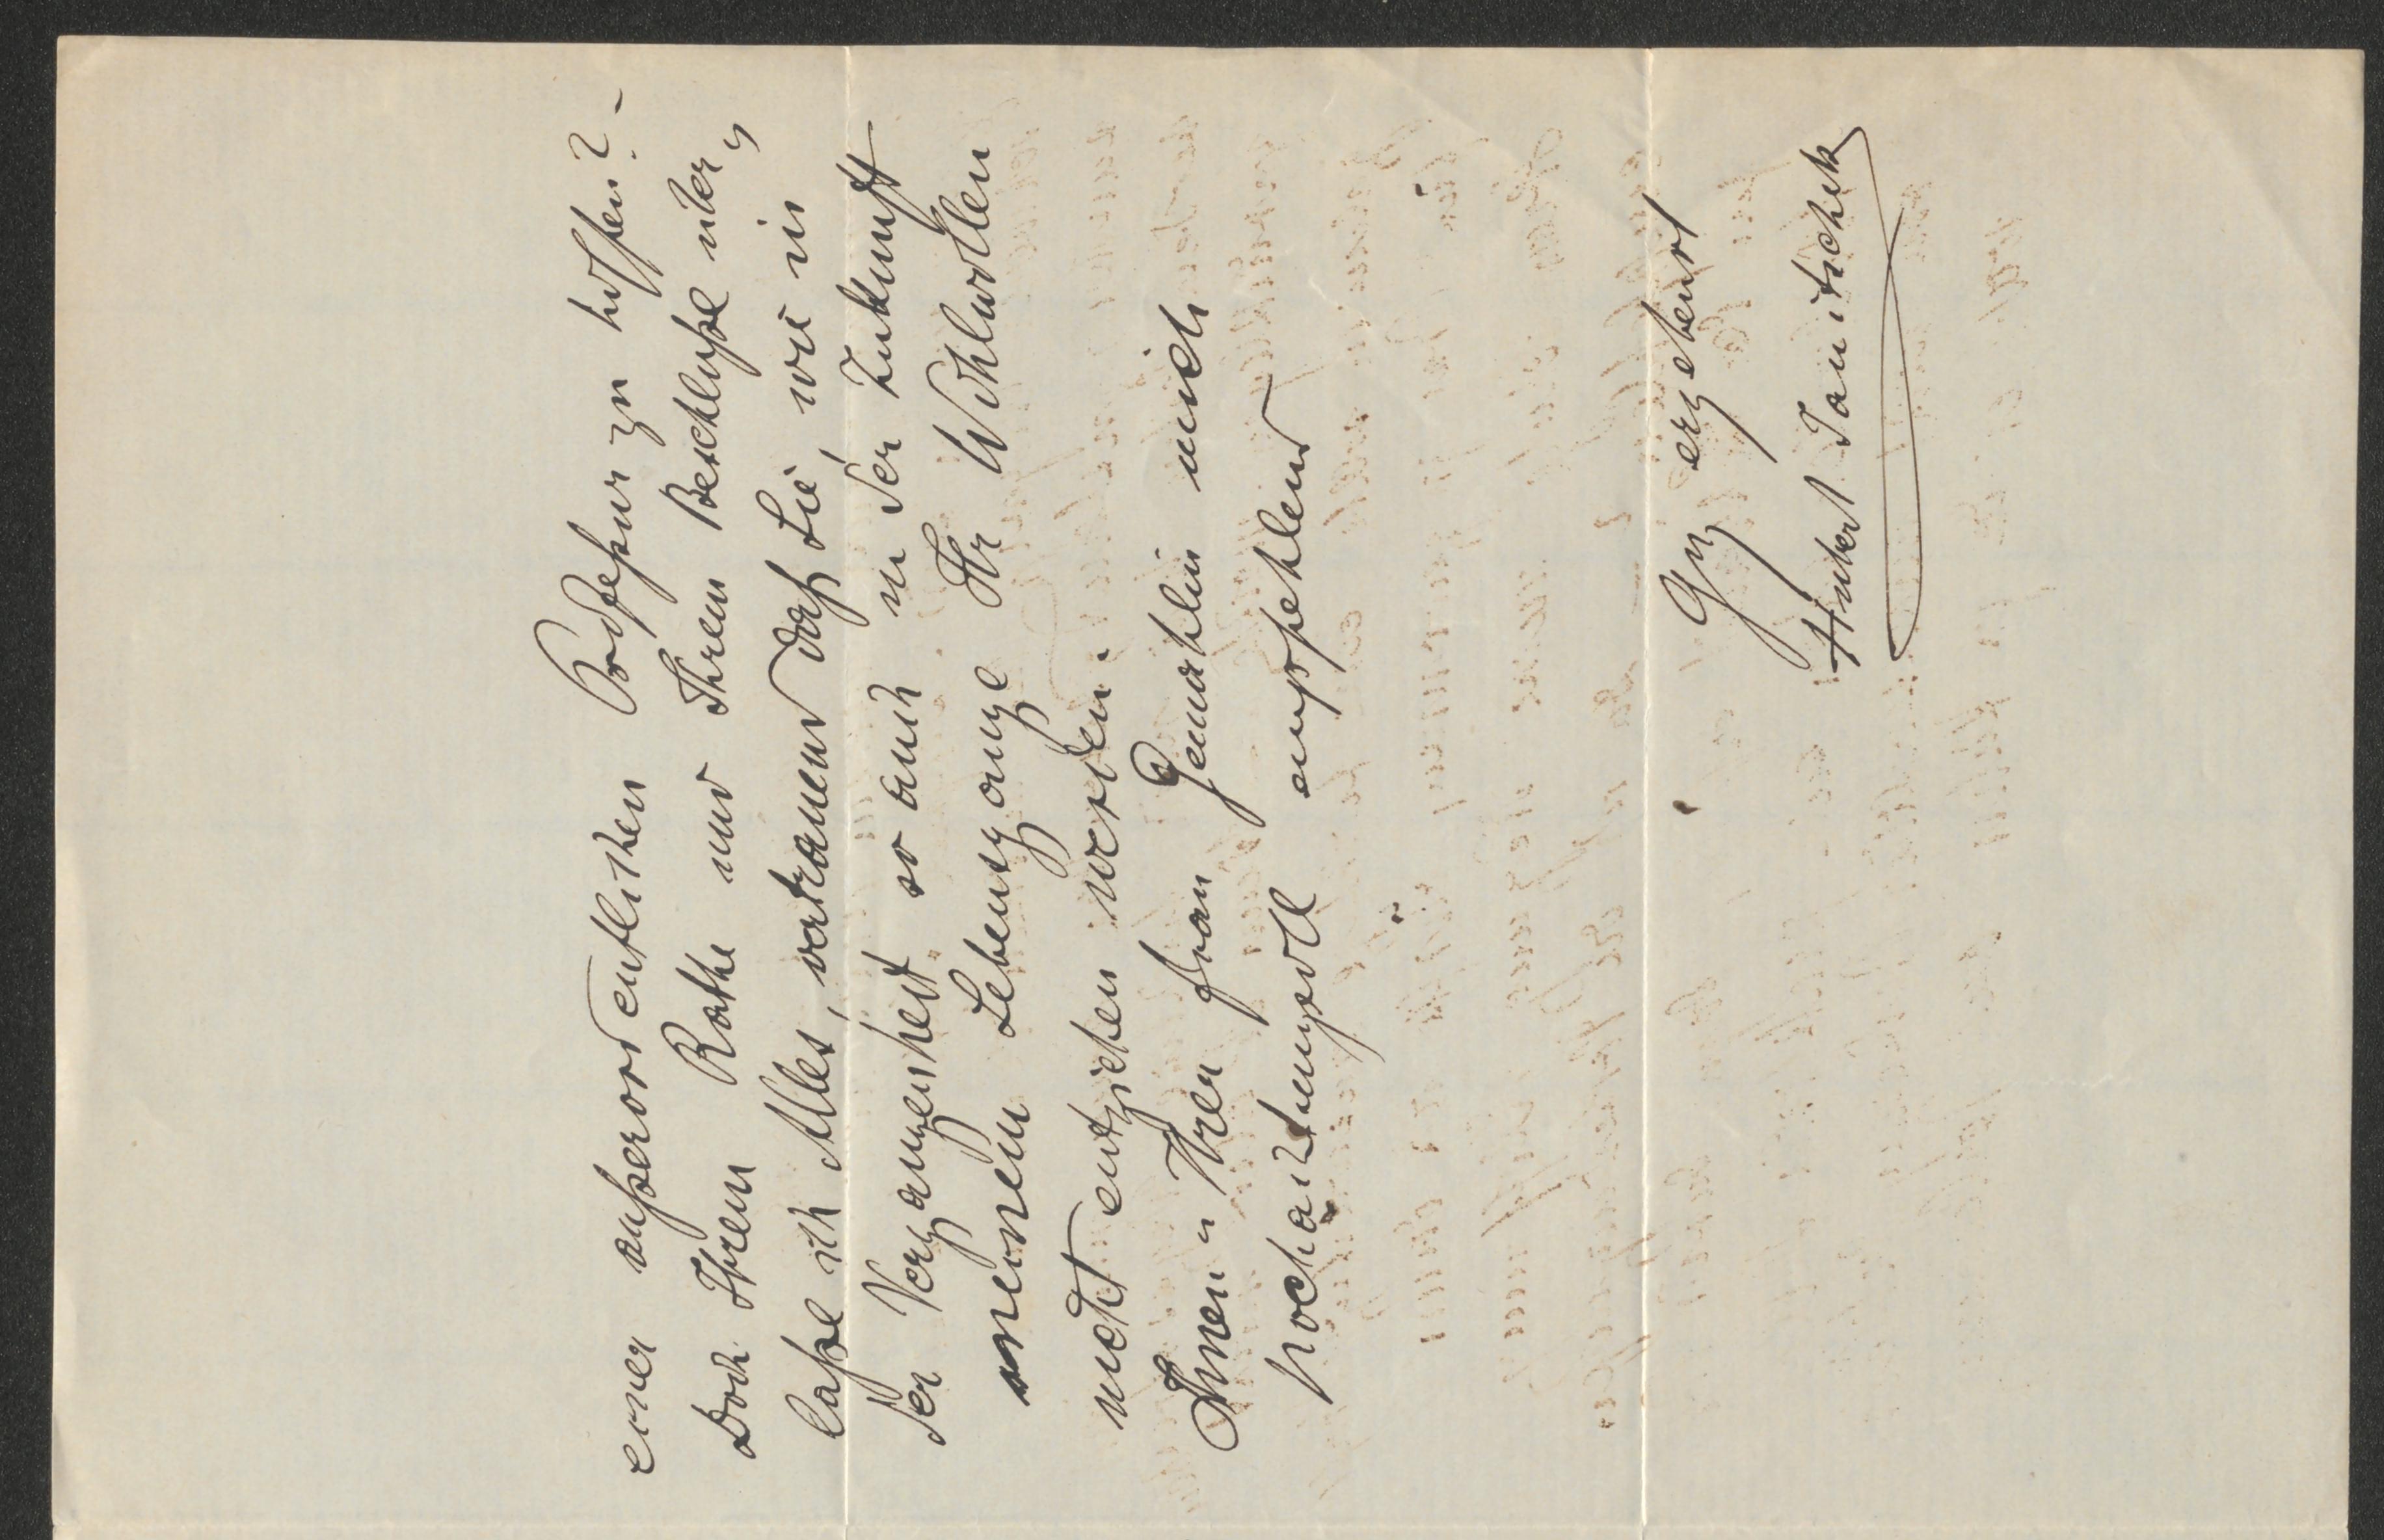 einer außerordentlichen Professur zu hoffen? –
Doch Ihrem Rathe und Ihrem Beschluße über„
laße ich Alles, vertrauend daß Sie, wie in
der Vergangenheit so auch in der Zukunft
meinem Lebensgange Ihr Wohlwollen
nicht entziehen werden.
Ihnen u Ihrer Frau Gemahlin mich
hochachtungsvoll empfehlend
Ihr ergebenst
Hubert Janitschek